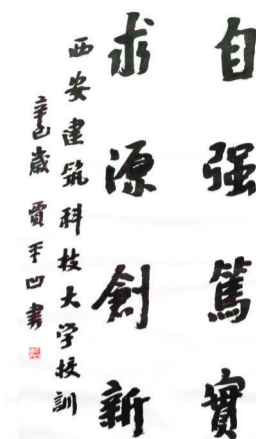 自强篤實
求源創新
西安建筑科技大学校訓
辛巳歲 賈平凹書